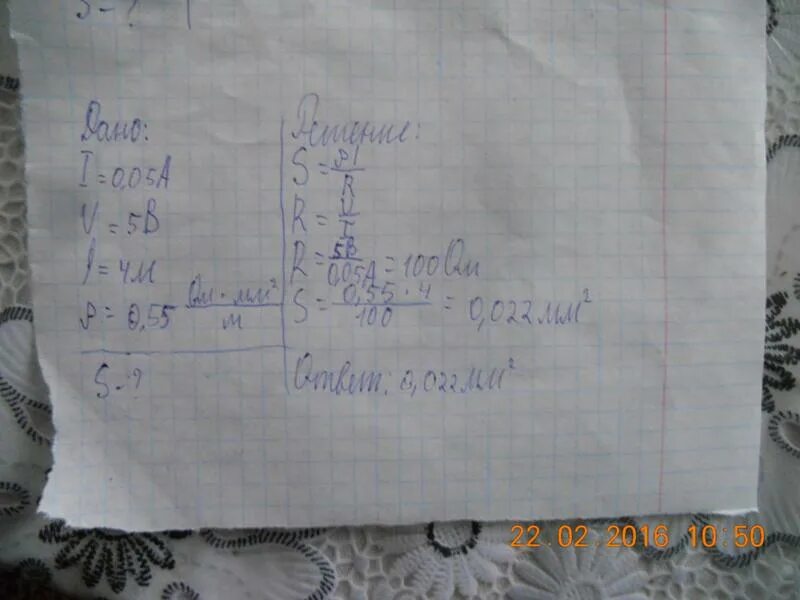 S - ?
Дано:
I = 0,05А
V = 5В
l = 4м
ρ = 0,55 Ом · мм² / м
S - ?
Решение:
S = ρl / R
R = U / I
R = 5В / 0,05А = 100 Ом
S = 0,55 · 4 / 100 = 0,022 мм²
Ответ: 0,022 мм²
22.02.2016 10:50